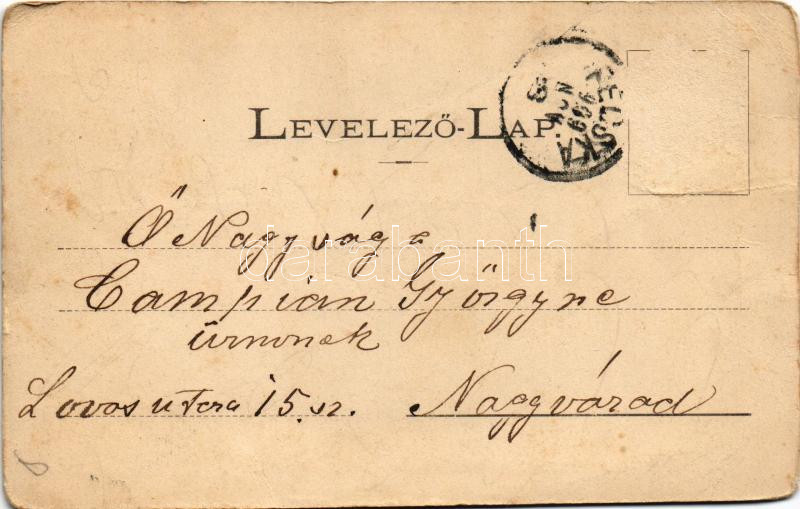 LEVELEZŐ-LAP.
Ő Nagysága
Campián Györgyne
úrnonek
Lovos utcza 15. sz. Nagyvárad
darabanth